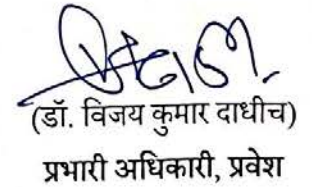 (डॉ. विजय कुमार दाधीच)
प्रभारी अधिकारी, प्रवेश